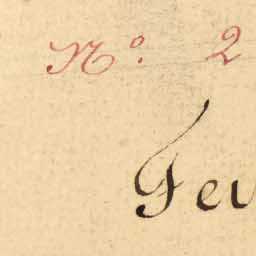 No. 2
Fev